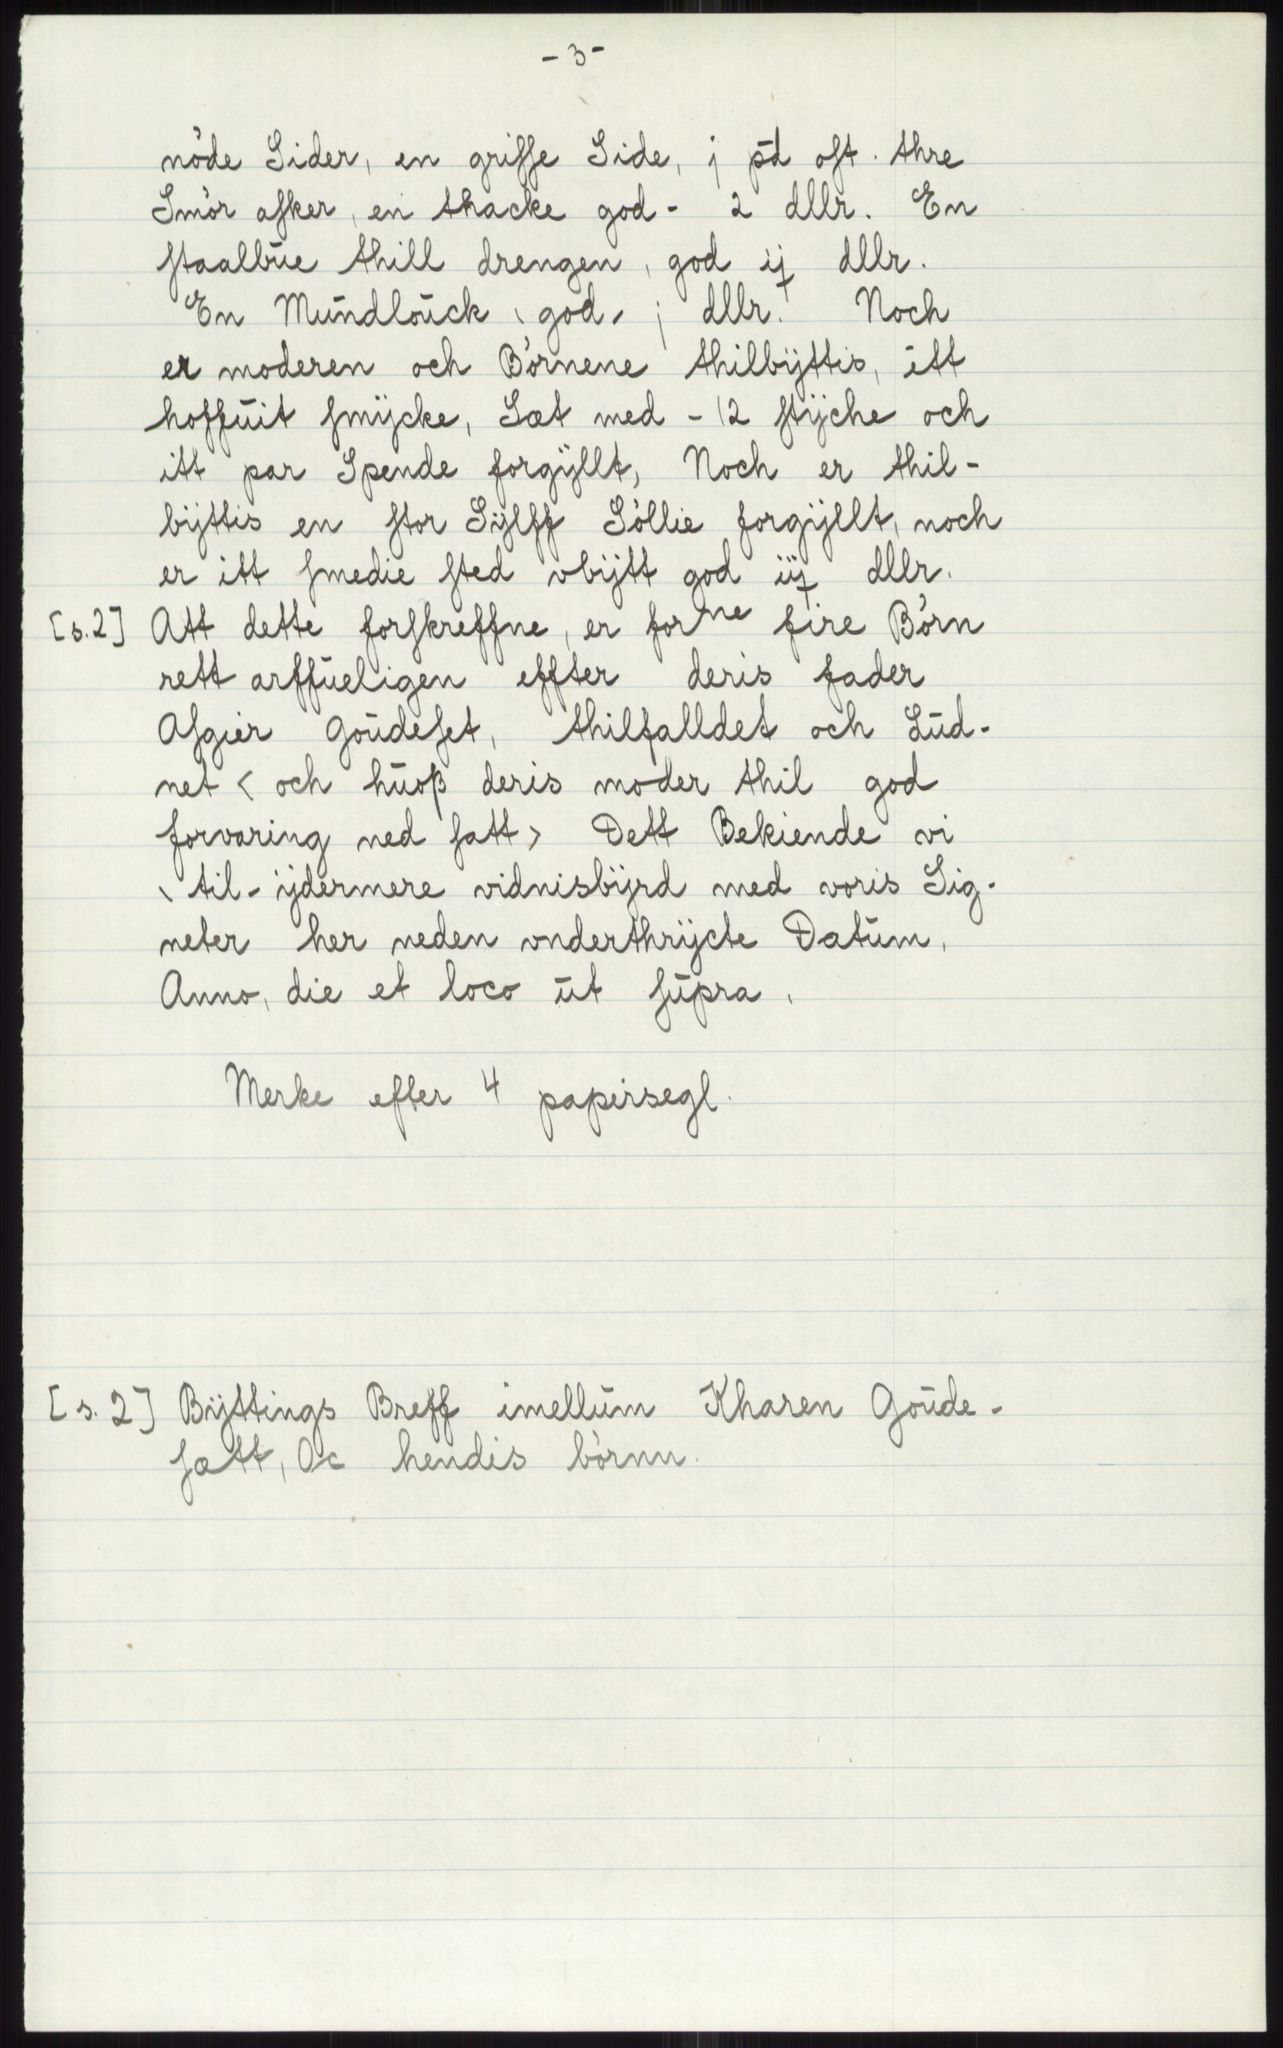 - 3 -
nöde Sider, en griſſe Side, j pd oſt. thre
Smör aſker, en thacke god - 2 dllr. En
ſtaalbue thill drengen, god ij dllr.
En Mundlouck, god, j dllr. Noch
er moderen och Börnene thilbÿttis, itt
hoffuit ſmÿcke, Sæt med - 12 ſtÿche och
itt par Spende forgÿllt, Noch er thil-
bÿttis en ſtor Sÿlff Söllie forgÿllt, noch
er itt ſmedie ſted vbÿtt god iij dllr.
[s.2] Att dette forſkreffne, er forne fire Börn
rett arffueligen effter deris fader
Aſgier Goudeſet, thilfalldet och Lud-
net < och huoß deris moder thil god
forvaring ned ſatt > Dett Bekiende vi
, til - ÿdermere vidnisbÿrd med voris Sig-
neter her neden vnderthrÿcte Datum,
Anno, die et loco ut ſupra,
Merke efter 4 papirsegl.
[s. 2] Bÿttings Breff imellum Kharen Goude-
ſætt, Oc hendis börnn.